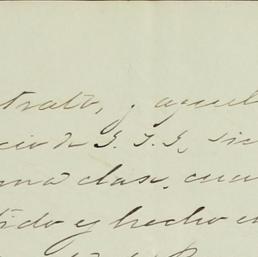 trato, y aquel
cio de S. S. S, sic
ma clase, cua
tido y hecho e